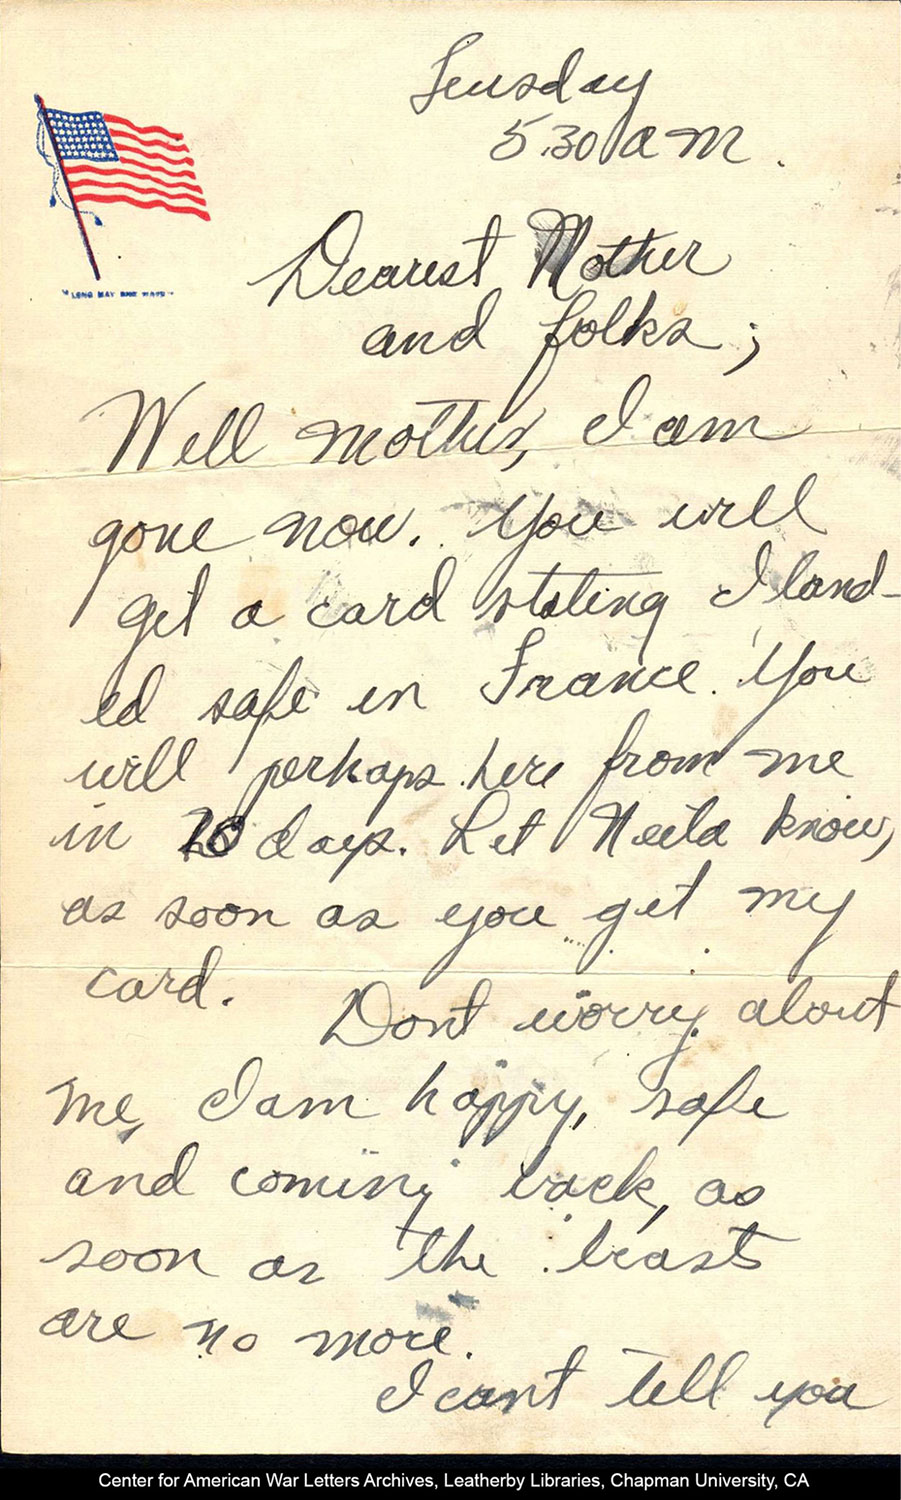 Teusday
5.30 a m.
"LONG MAY SHE WAVE"
Dearest Mother
and folks;
Well mother, I am
gone now. You will
get a card stating I land-
ed safe in France. You
will perhaps here from me
in days. Let Neita know,
as soon as you get my
card.
Dont worry about
me, I am happy, safe
and coming back, as
soon as the beasts
are no more.
I cant tell you
Center for American War Letters Archives, Leatherby Libraries, Chapman University, CA